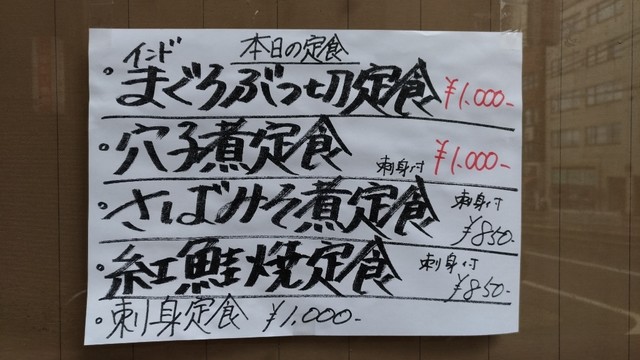 本日の定食
・インドまぐろぶつ切定食 ¥1.000-
・穴子煮定食 刺身付 ¥1.000-
・さばみそ煮定食 刺身付 ¥850-
・紅鮭焼定食 刺身付 ¥850-
・刺身定食 ¥1,000-